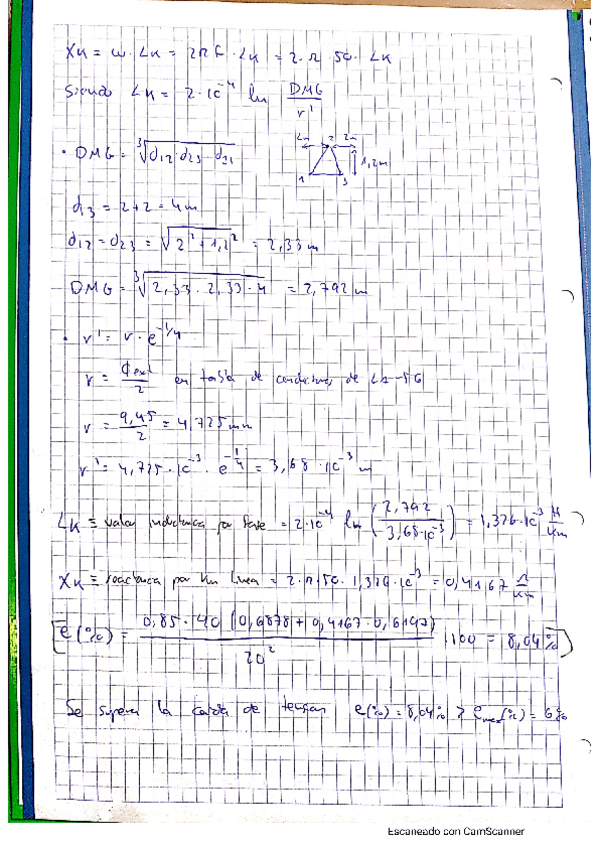 Xk = w · Lk = 2πf · Lk = 2·π·50·Lk
Siendo Lk = 2·10⁻⁴ ln DMG/r'
2m 2 2m
1 3 1,2m
· DMG = ∛(d12 · d23 · d31)
d13 = 2+2 = 4m
d12 = d23 = √(2² + 1,2²) = 2,33 m
DMG = ∛(2,33 · 2,33 · 4) = 2,792 m
· r' = r · e^(-1/4)
r = ϕext/2 en tabla de conductores de LA-56
r = 9,45/2 = 4,725 mm
r' = 4,725·10⁻³ · e^(-1/4) = 3,68·10⁻³ m
Lk ≡ valor inductancia por fase = 2·10⁻⁴ ln (2,792/3,68·10⁻³) = 1,326·10⁻³ H/km
Xk ≡ reactancia por km linea = 2·π·50·1,326·10⁻³ = 0,4167 Ω/km
e(%) = 0,85·40 (0,6878 + 0,4167·0,6197)/20² · 100 = 8,04%
Se supera la caida de tension e(%) = 8,04% > emax(%) = 6%
Escaneado con CamScanner